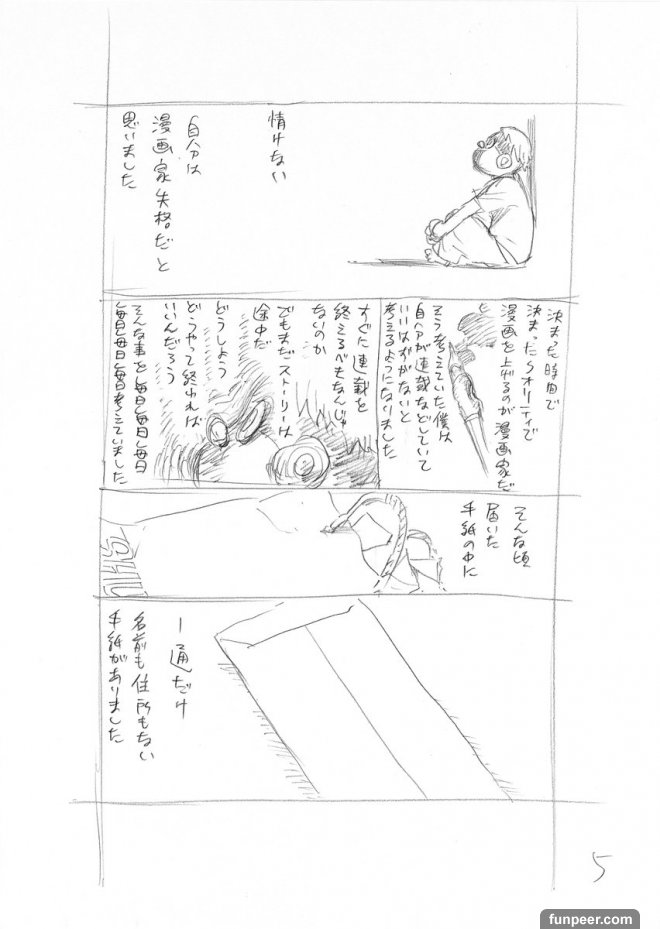 情けない
自分は
漫画家失格だと
思いました
決まった時間で
決まったクオリティで
漫画を上げるのが漫画家だ
そう考えていた僕は
自分が連載などしていて
いいはずがないと
考えるようになりました
すぐに連載を
終えるべきなんじゃ
ないのか
でもまだストーリーは
途中だ
どうしよう
どうやって終われば
いいんだろう
そんな事を毎日毎日毎日
毎日毎日毎日考えていました
そんな頃
届いた
手紙の中に
一通だけ
名前も住所もない
手紙がありました
5
funpeer.com